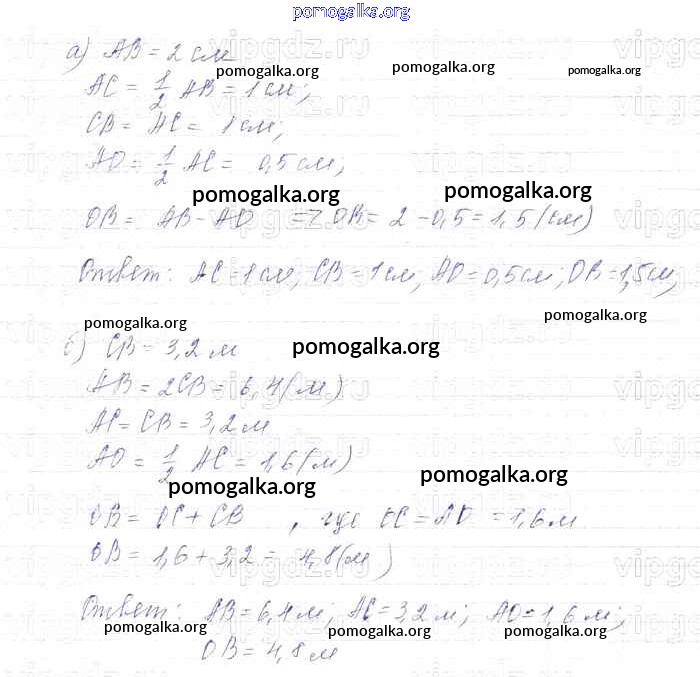 pomogalka.org
а) AB = 2 см
pomogalka.org pomogalka.org pomogalka.org
AC = 1/2 AB = 1 см;
CB = AC = 1 см;
AO = 1/2 AC = 0,5 см;
pomogalka.org pomogalka.org
OB = AB - AO => OB = 2 - 0,5 = 1,5 (см)
Ответ: AC = 1 см, CB = 1 см, AO = 0,5 см; OB = 1,5 см,
pomogalka.org pomogalka.org
б) CB = 3,2 м
pomogalka.org
AB = 2CB = 6,4 (м)
AC = CB = 3,2 м
AO = 1/2 AC = 1,6 (м)
pomogalka.org pomogalka.org
OB = OC + CB , где OC = AO = 1,6 м
OB = 1,6 + 3,2 = 4,8 (м)
Ответ: AB = 6,4 м; AC = 3,2 м; AO = 1,6 м;
pomogalka.org pomogalka.org pomogalka.org
OB = 4,8 м